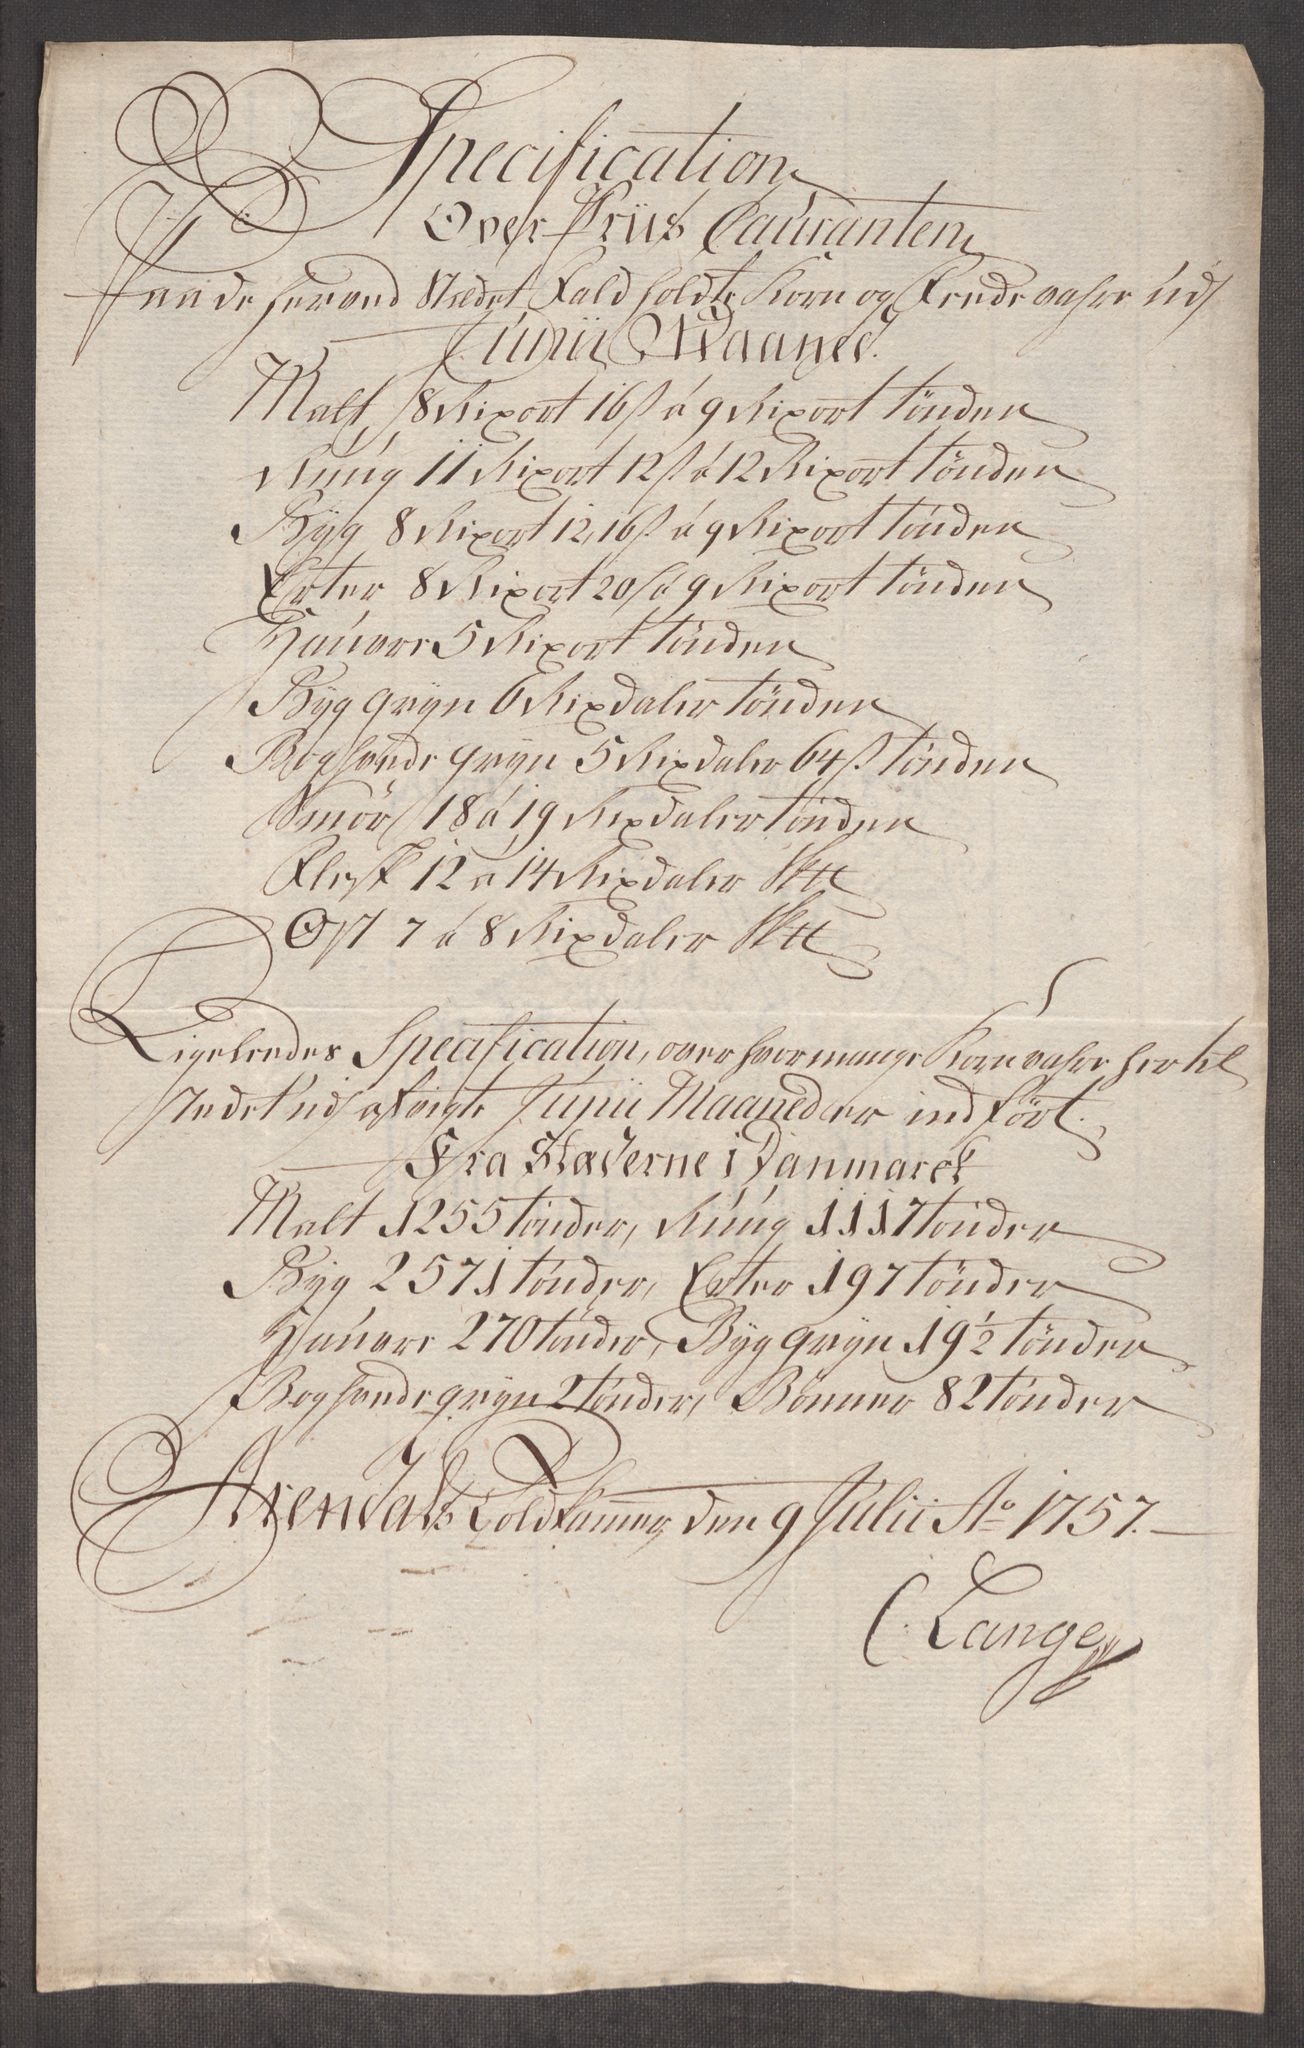 Specification
Over Priis Courranten
Paa de her ved Stædet Fald holdte Korn og Fede vahre udj
Junii Maaned.
Malt 8 Rixort 16 s á 9 Rixort tönden
Rúug 11 Rixort 12 s á 12 Rixort tönden
Byg 8 Rixort 12, 16 s á 9 Rixort tönden
Erter 8 Rixort 20 s á 9 Rixort tönden
Hauvre 5 Rixort tönden
Byg gryn 6 Rixdaler tönden
Boghvede gryn 5 Rixdaler 64 s tönden
Smör 18 á 19 Rixdaler tönden
Flesk 12 á 14 Rixdaler
Ost 7 á 8 Rixdaler
Ligeleedes Specification, over hvormange Korn vahre her til
stedet udj afvigte Junii Maaned er indfört.
Fra Stæderne i Danmarck
Malt 1255 tönder, Rúug 1117 tönder
Byg 2571 tönder, Erter 197 tönder
Hauvre 270 tönder, Byg gryn 19 1/2 tönder
Boghvede gryn 2 tönder, Bönner 82 tönder
Arendals Toldkammer, den 9 Julii Ao 1757.
C. Lange